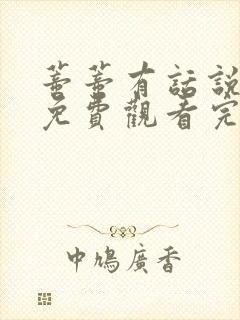 蕃蕃有話說
免費觀看完
中鳩廣香